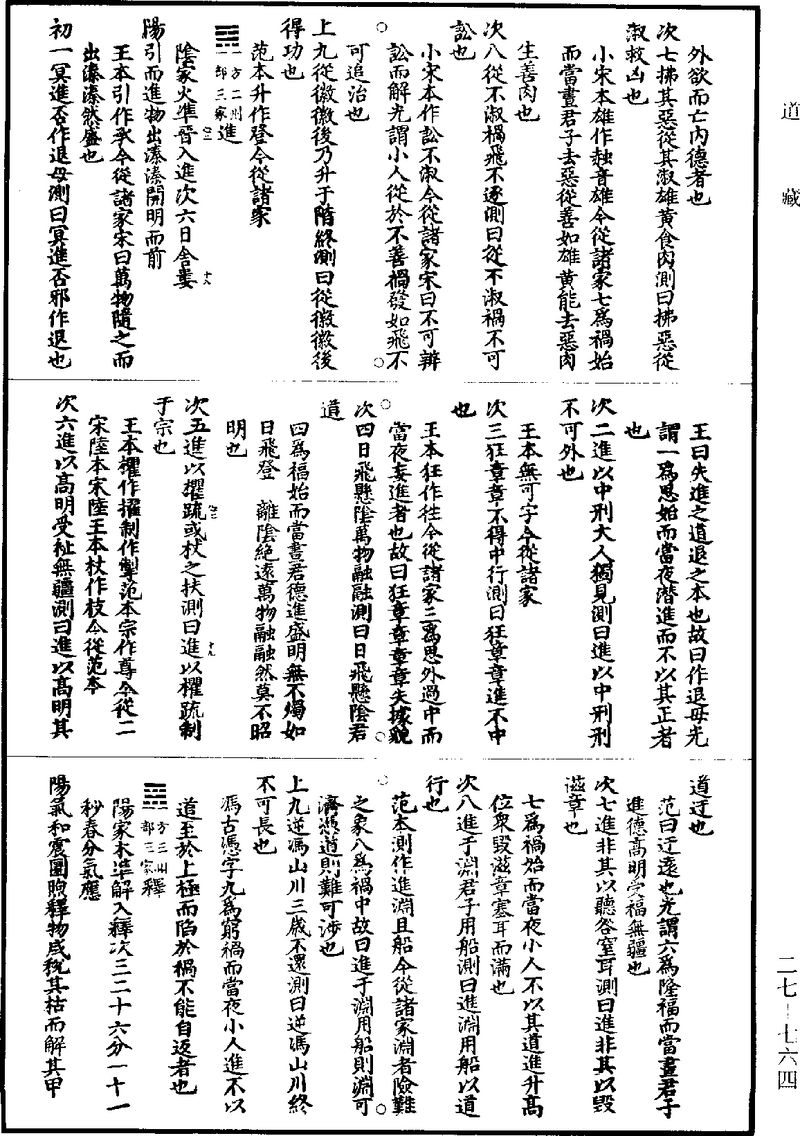 道藏
外欲而亡内德者也
次七拂其惡從其淑雄黄食肉測曰拂惡從
淑救凶也
小宋本雄作䧺音雄今從諸家七爲禍始
而當晝君子去惡從善如雄黄能去惡肉
生善肉也
次八從不淑禍飛不逐測曰從不淑禍不可
訟也
小宋本作訟不淑今從諸家宋曰不可辨
訟而解光謂小人從於不善禍發如飛不
可追治也
上九從徽徽後乃升于階終測曰從徽徽後
得功也
范本升作登今從諸家
一方二州部三家進
陰家火準晉入進次六日舍婁
陽引而進物出溱溱開明而前
王本引作永今從諸家宋曰萬物隨之而
出溱溱然盛也
初一冥進否作退母測曰冥進否邪作退也
王曰失進之道退之本也故曰作退母光
謂一爲思始而當夜潛進而不以其正者
也
次二進以中刑大人獨見測曰進以中刑刑
不可外也
王本無可字今從諸家
次三狂章章不得中行測曰狂章章進不中
也
王本狂作往今從諸家三爲思外過中而
當夜妄進者也故曰狂章章章章失據貌
次四日飛懸陰萬物融融測曰日飛懸陰君
道
四爲福始而當晝君德進盛明無不燭如
日飛登 離陰絶遠萬物融融然莫不昭
明也
次五進以欋疏或杖之扶測曰進以欋疏制
于宗也
王本欋作擢制作掣范本宗作尊今從二
宋陸本宋陸王本杖作枝今從范本
次六進以高明受祉無疆測曰進以高明其
道迂也
范曰迂遠也光謂六爲隆福而當晝君子
進德高明受福無疆也
次七進非其以聽咎窒耳測曰進非其以毀
滋章也
七爲禍始而當夜小人不以其道進升高
位衆毀滋章塞耳而滿也
次八進于淵君子用船測曰進淵用船以道
行也
范本測作進淵且船今從諸家淵者險難
之象八爲禍中故曰進于淵用船則淵可
濟遵道則難可涉也
上九逆馮山川三歲不還測曰逆馮山川終
不可長也
馮古憑字九爲窮禍而當夜小人進不以
道至於上極而陷於禍不能自返者也
方三州部三家釋
陽家木準解入釋次三二十六分一十一
秒春分氣應
陽氣和震圜煦釋物咸稅其枯而解其甲
二七—七六四